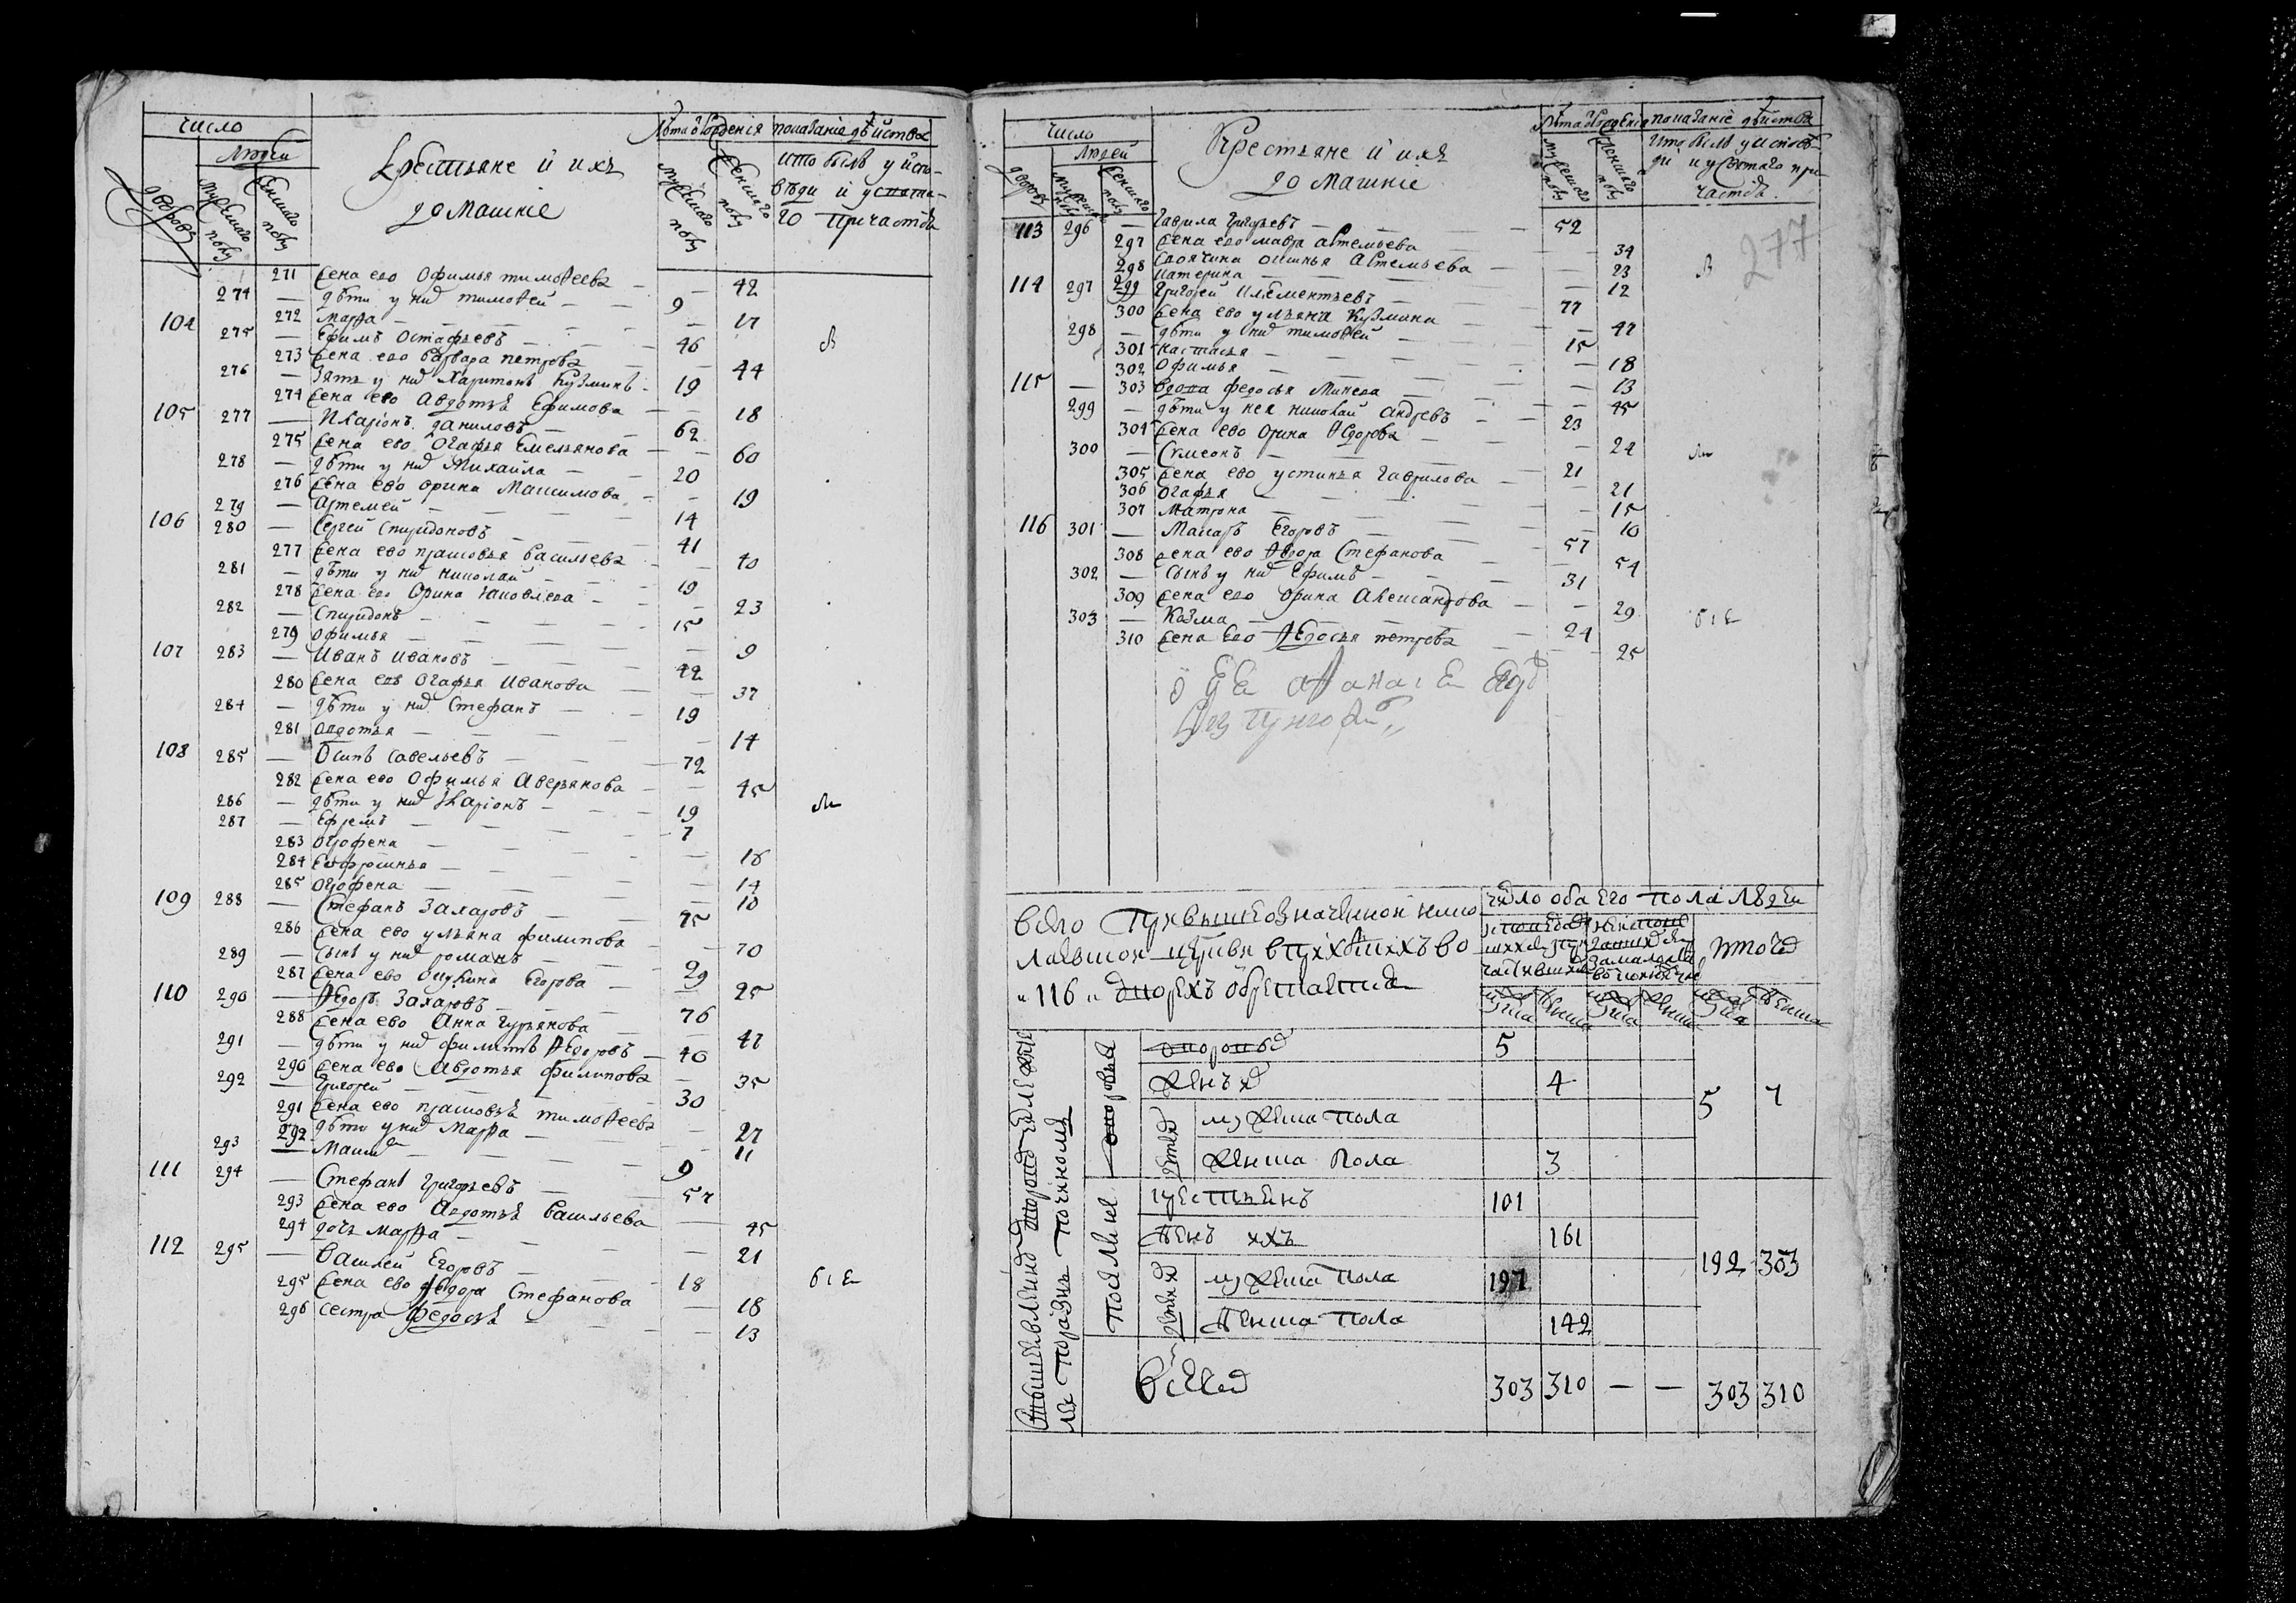 число
людей
дворовъ
мужескаго полу
женскаго полу
Крестьяне и ихъ
домашніе
лѣта от рожденія
мужескаго полу
женскаго полу
показаніе дѣйства
кто былъ у испо-
вѣди и у святa-
го причастія
271 жена ево Офимья тимофеева — 42
274 — дѣти у них тимофей — 9
272 марѳа — 17
104 275 — Ефимъ Остафьевъ — 46
273 жена ево варвара петрова — 44
276 — зять у них Харитонъ Кузминъ 19
274 жена ево Авдотья Ефимова — 18
105 277 — Иларіонъ даниловъ — 62
275 жена ево Огафья Емельянова — 60
278 — дѣти у них Михайла — 20
276 жена ево орина Максимова — 19
279 — Артемей — 14
106 280 — Сергей Спиридоновъ — 41
277 жена ево прасковья васильева — 40
281 — дѣти у них николай — 19
278 жена ево Орина яковлева — 23
282 — Спиридонъ — 15
279 офимья — 9
107 283 — Иванъ ивановъ — 42
280 жена ево Огафья Иванова — 37
284 — дѣти у них Стефанъ — 19
281 авдотья — 14
108 285 — Осипъ савельевъ — 72
282 жена ево Офимья Аверьянова — 45
286 — дѣти у них Иларіонъ — 19
287 — Ефремъ — 7
283 огрофена — 18
284 евфросинья — 14
285 огрофена — 10
109 288 — Стефанъ Захаровъ — 75
286 жена ево ульяна филипова — 70
289 — сынъ у них романъ — 29
287 жена ево Егорова — 25
110 290 — Ѳедоръ Захаровъ — 76
288 жена ево Анна Гурьянова — 47
291 — дѣти у них филипъ Ѳедоровъ — 40
290 жена ево Авдотья филипова — 35
292 — Григорей — 30
291 жена ево прасковья тимофеева — 27
292 дѣти у них Марѳа — 11
293 — Максим — 9
111 294 — Стефанъ Григорьевъ — 57
293 жена ево Авдотья васильева — 45
294 дочь марѳа — 21
112 295 — Василей Егоровъ — 18
295 жена ево Ѳедора Стефанова — 18
296 сестра федосья — 13
число
людей
дворовъ
мужескаго полу
женскаго полу
Крестьяне и ихъ
домашніе
лѣта от рожденія
мужескаго полу
женскаго полу
показаніе дѣйства
кто былъ у исповѣ-
ди и у святаго при-
частія
277
113 296 — Гаврила Григорьевъ — 52
297 жена ево мавра артемьева — 34
298 своячина оксинья Артемьева — 23
299 катерина — 12
114 297 — Григорей Клементьевъ — 77
300 жена ево ульяна Кузмина — 47
298 — дѣти у них тимофей — 15
301 настасья — 18
302 Офимья — 13
115 — 303 вдова федосья Минеева — 45
299 — дѣти у нея николай андреевъ — 23
304 жена ево Орина Ѳедорова — 24
300 — Симеонъ — 21
305 жена ево устинья гаврилова — 21
306 огафья — 15
307 матрона — 10
116 301 — Макаръ Егоровъ — 57
308 жена ево Ѳедора Стефанова — 54
302 — сынъ у них Ефимъ — 31
309 жена ево орина Александрова — 29
303 — Козма — 24
310 жена ево Ѳедосья петрова — 25
всего при вышеозначенной нико
лаевской церкви в приходѣ во
"116" дворехъ обретается
число обоего пола людей
итого
мужска женска мужска женска мужска женска
дворовыя
дворовых 5
женъ их 4
детей их
мужеска пола
женска пола 3
5 7
крестьянъ 101
женъ ихъ 161
детей их
мужеска пола 191
женска пола 142
192 303
всего 303 310 — — 303 310